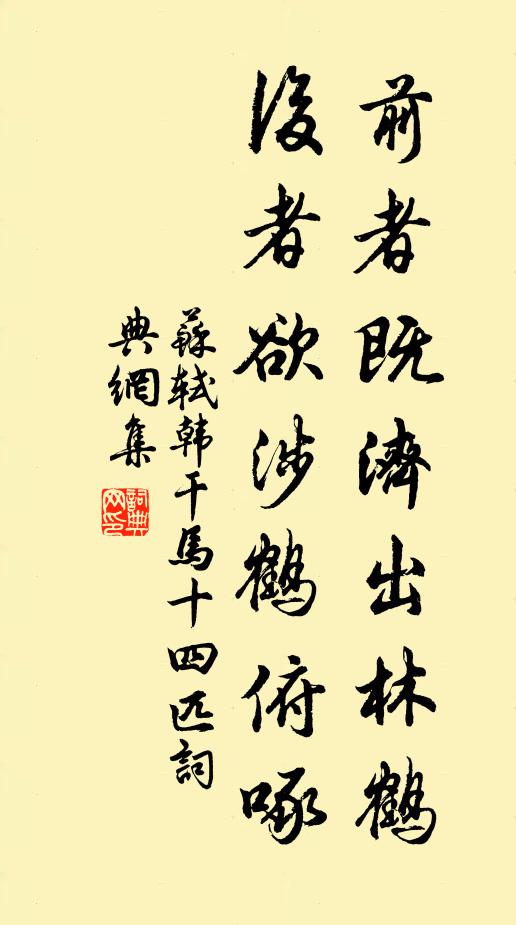 前者既濟出林鶴
後者欲涉鶴俯啄
蘇軾韩干馬十四匹詞
典網集
詞典网印